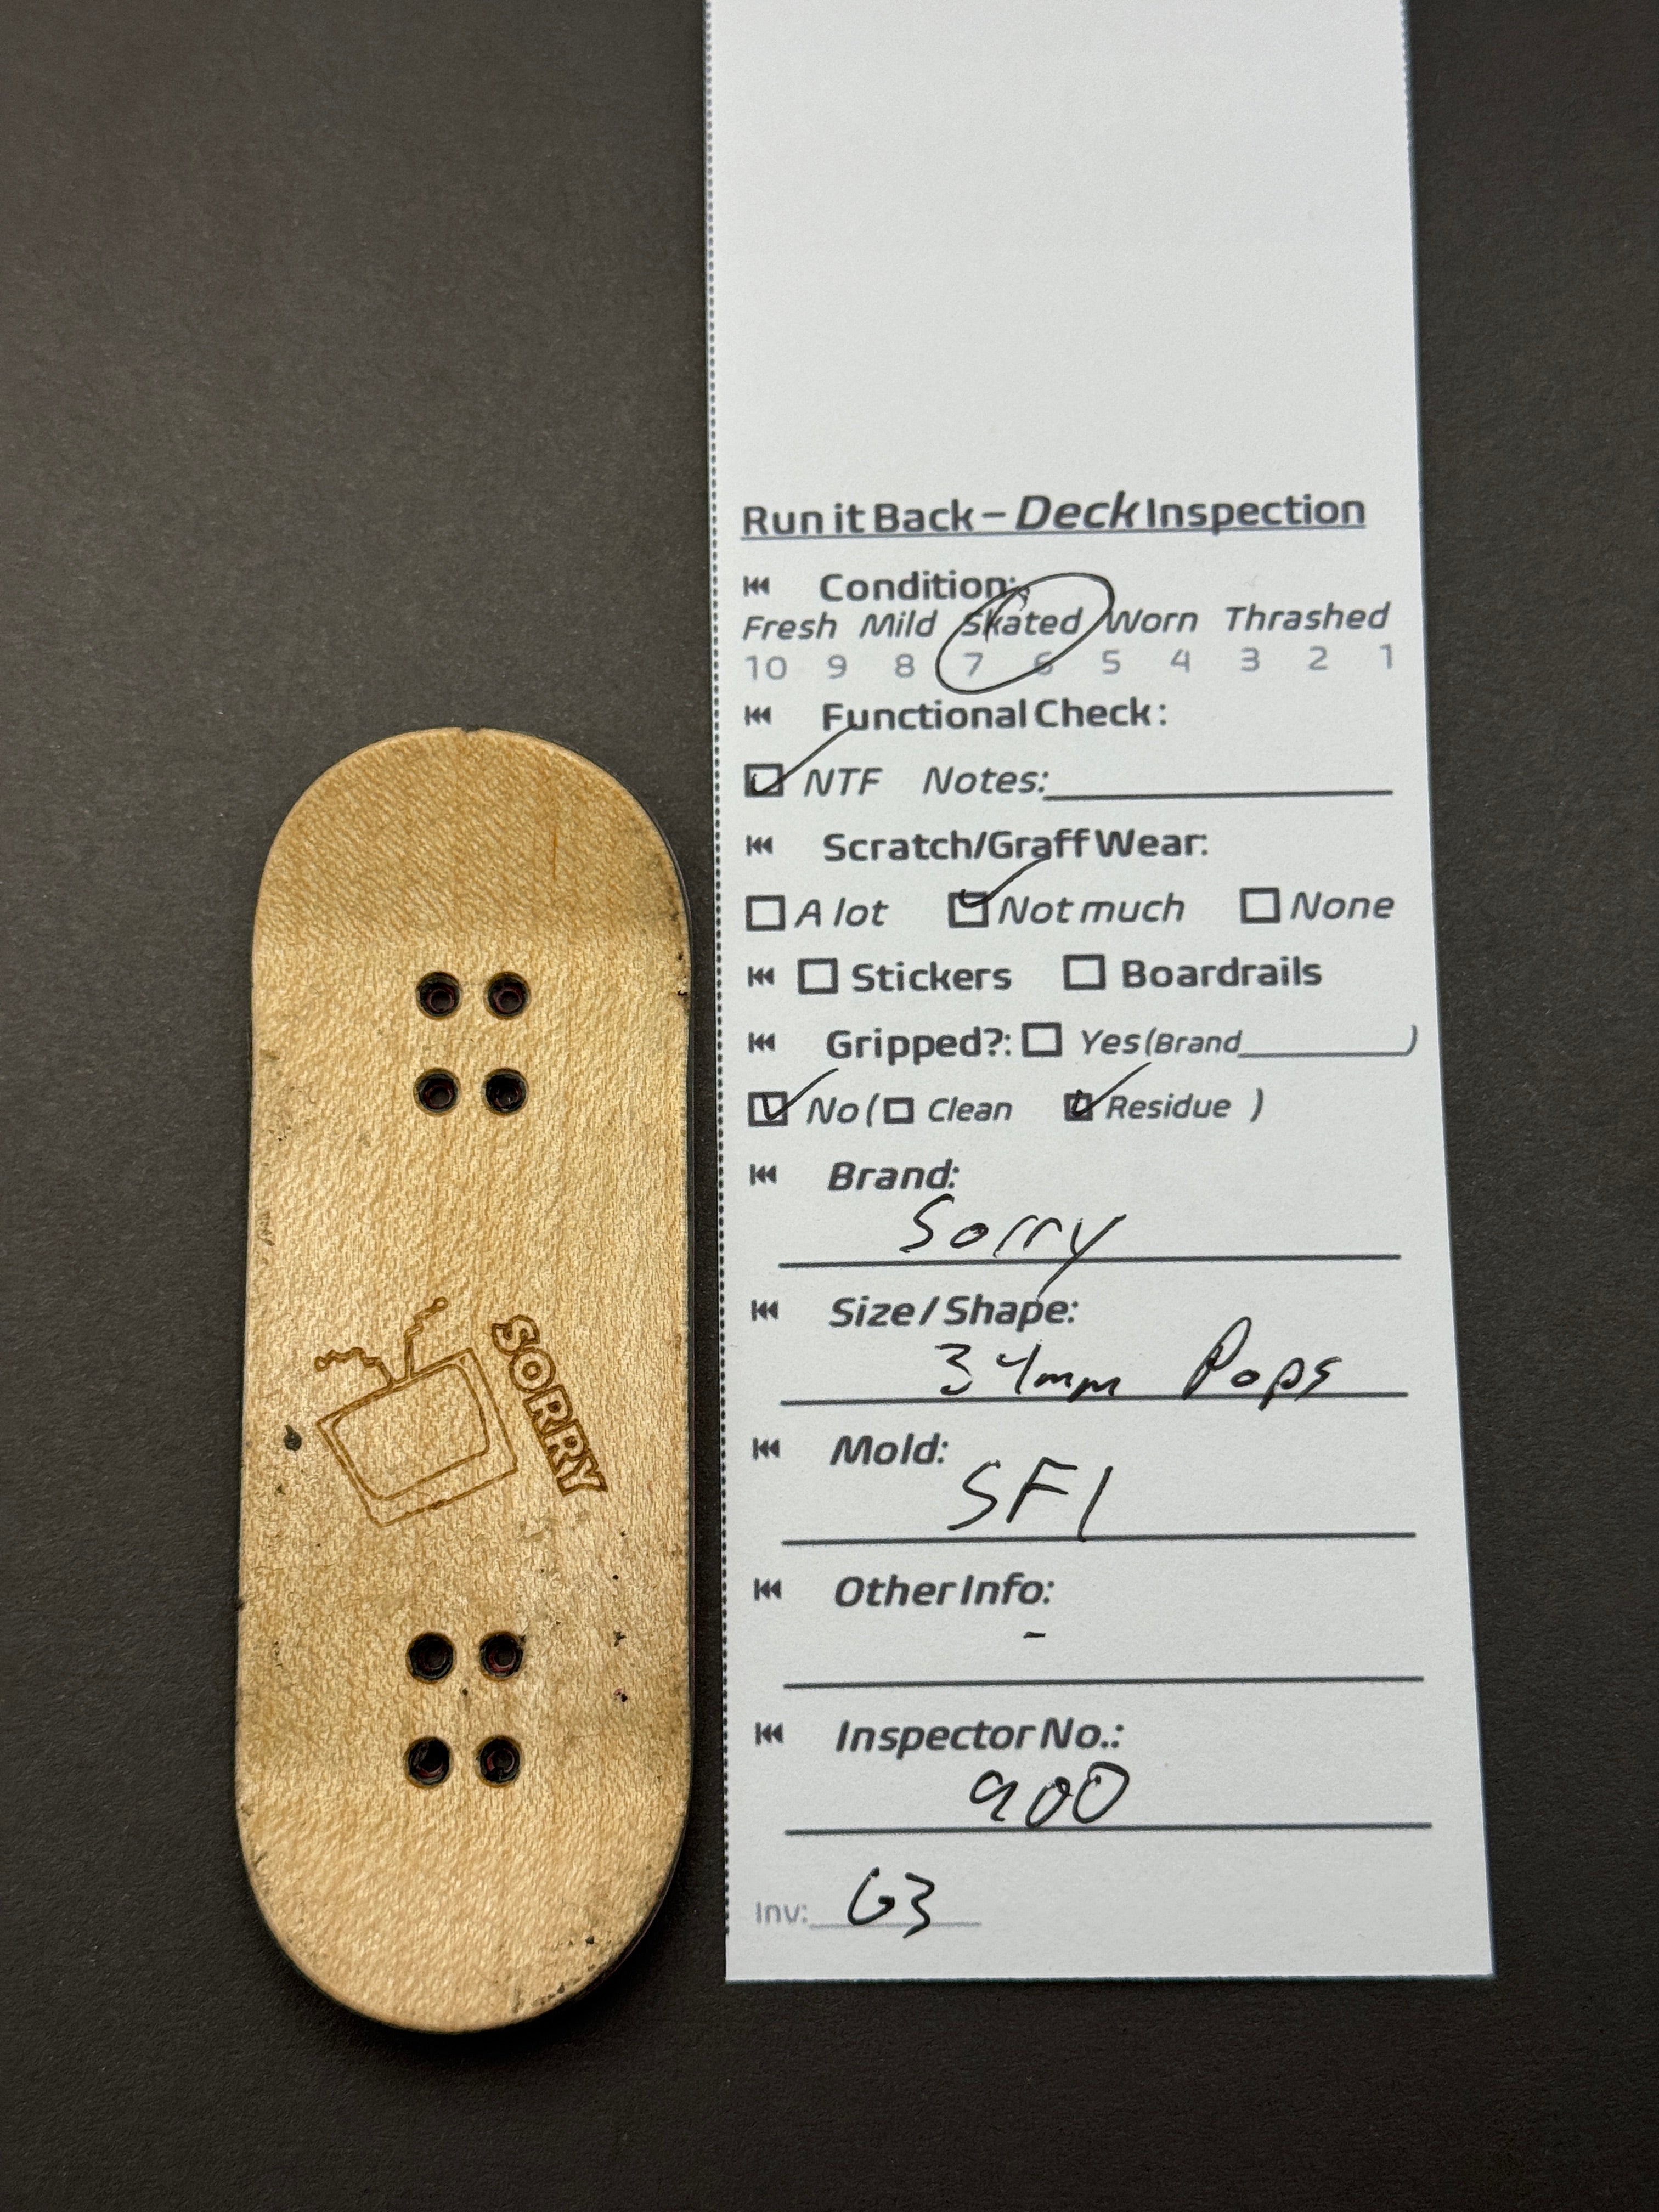 Run it Back – Deck Inspection
Condition:
Fresh Mild Skated Worn Thrashed
10 9 8 7 6 5 4 3 2 1
Functional Check:
NTF Notes:
Scratch/Graff Wear:
A lot Not much None
Stickers Boardrails
Gripped?: Yes (Brand )
No ( Clean Residue )
Brand:
Sorry
Size / Shape:
34mm Pops
Mold:
SF1
Other Info:
-
Inspector No.:
900
Inv: G3
SORRY